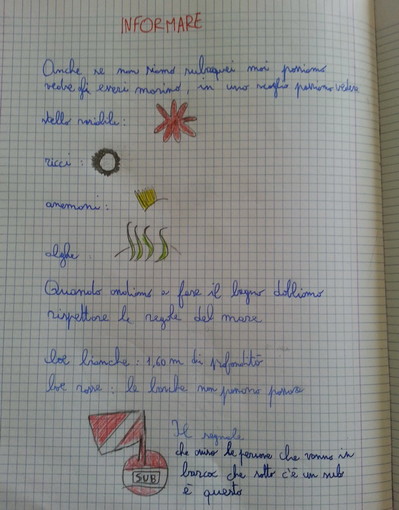 INFORMARE
Anche se non siamo subacquei noi possiamo
vedere gli esseri marini, in uno scoglio possiamo vedere
stelle marine:
ricci:
anemoni:
alghe:
Quando andiamo a fare il bagno dobbiamo
rispettare le regole del mare
boe bianche: 1,60 m di profondità
boe rosse: le barche non possono passare
Il segnale
che avvisa le persone che vanno in
barca che sotto c'è un sub
è questo
SUB